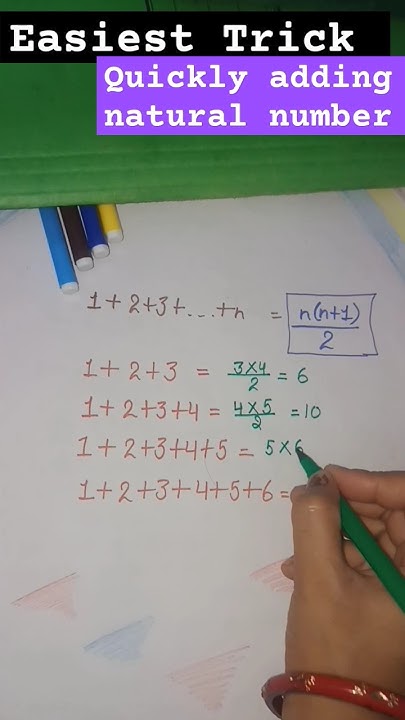 Easiest Trick
Quickly adding
natural number
1+2+3+...+n = n(n+1)/2
1+2+3 = 3×4/2 = 6
1+2+3+4 = 4×5/2 = 10
1+2+3+4+5 = 5×6
1+2+3+4+5+6 =